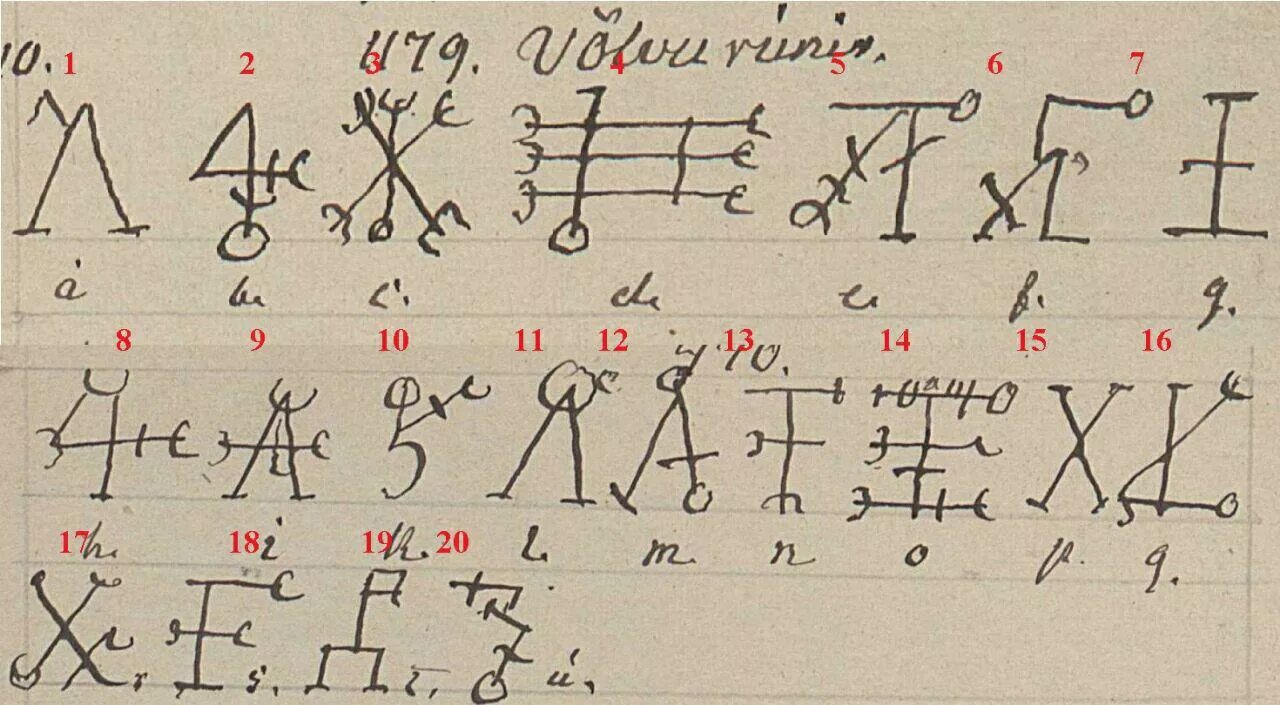 10. 479. Völvu rúnir.
1 2 3 4 5 6 7
á b. c. d. e. f. g.
8 9 10 11 12 13 14 15 16
h. i k. l. m. n o p. q.
17 18 19 20
r s. t. ú.